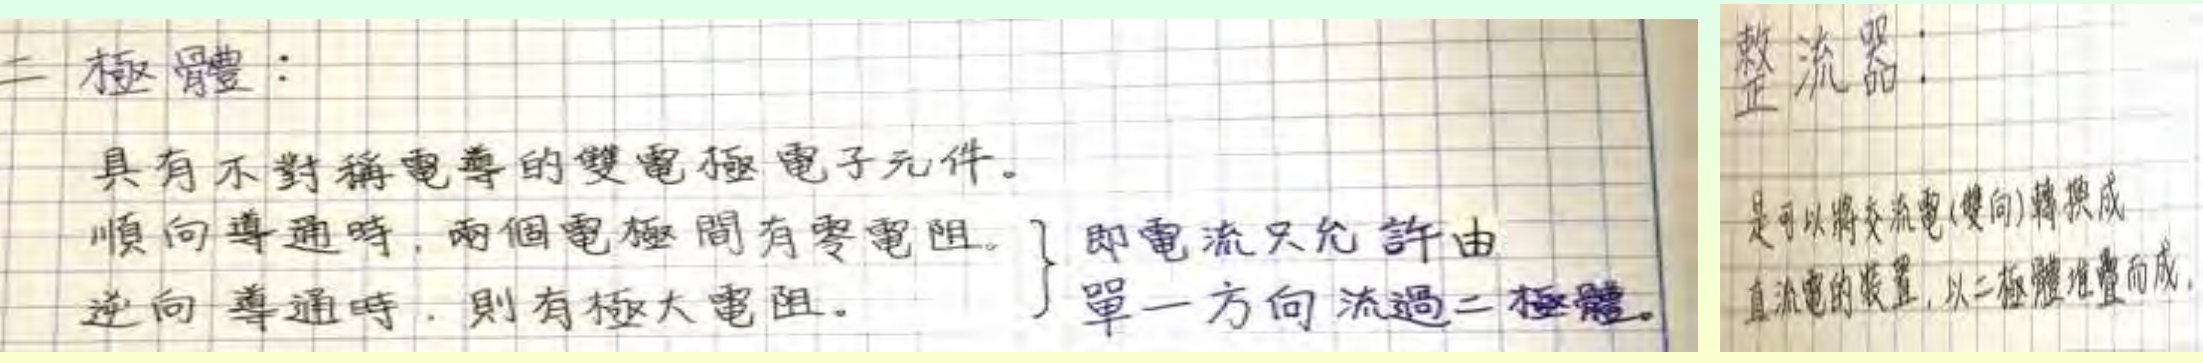 二極體：
具有不對稱電導的雙電極電子元件。
順向導通時，兩個電極間有零電阻。
逆向導通時，則有極大電阻。
} 即電流只允許由
單一方向流過二極體。
整流器：
是可以將交流電(雙向)轉換成
直流電的裝置，以二極體堆疊而成，